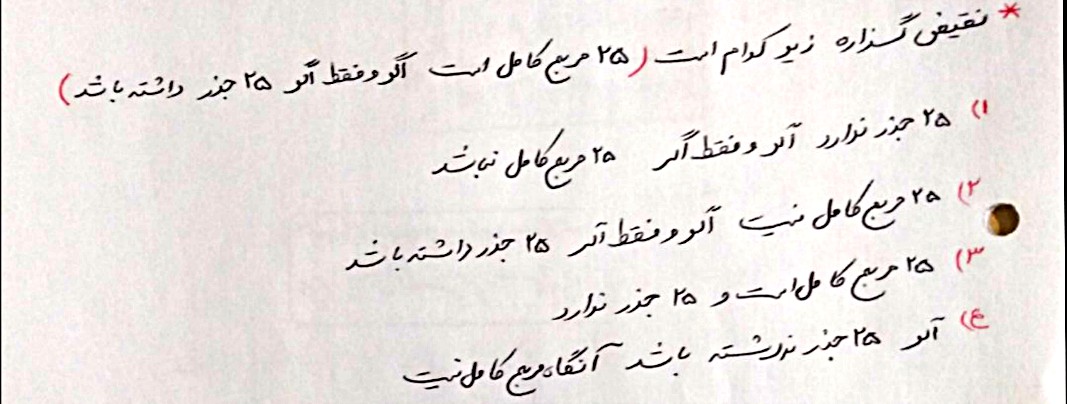 * نقیض گزاره زیر کدام است (۲۵ مربع کامل است اگر و فقط اگر ۲۵ جذر داشته باشد)
۱) ۲۵ جذر ندارد اگر و فقط اگر ۲۵ مربع کامل نباشد
۲) ۲۵ مربع کامل نیست اگر و فقط اگر ۲۵ جذر داشته باشد
۳) ۲۵ مربع کامل است و ۲۵ جذر ندارد
۴) اگر ۲۵ جذر نداشته باشد آنگاه مربع کامل نیست